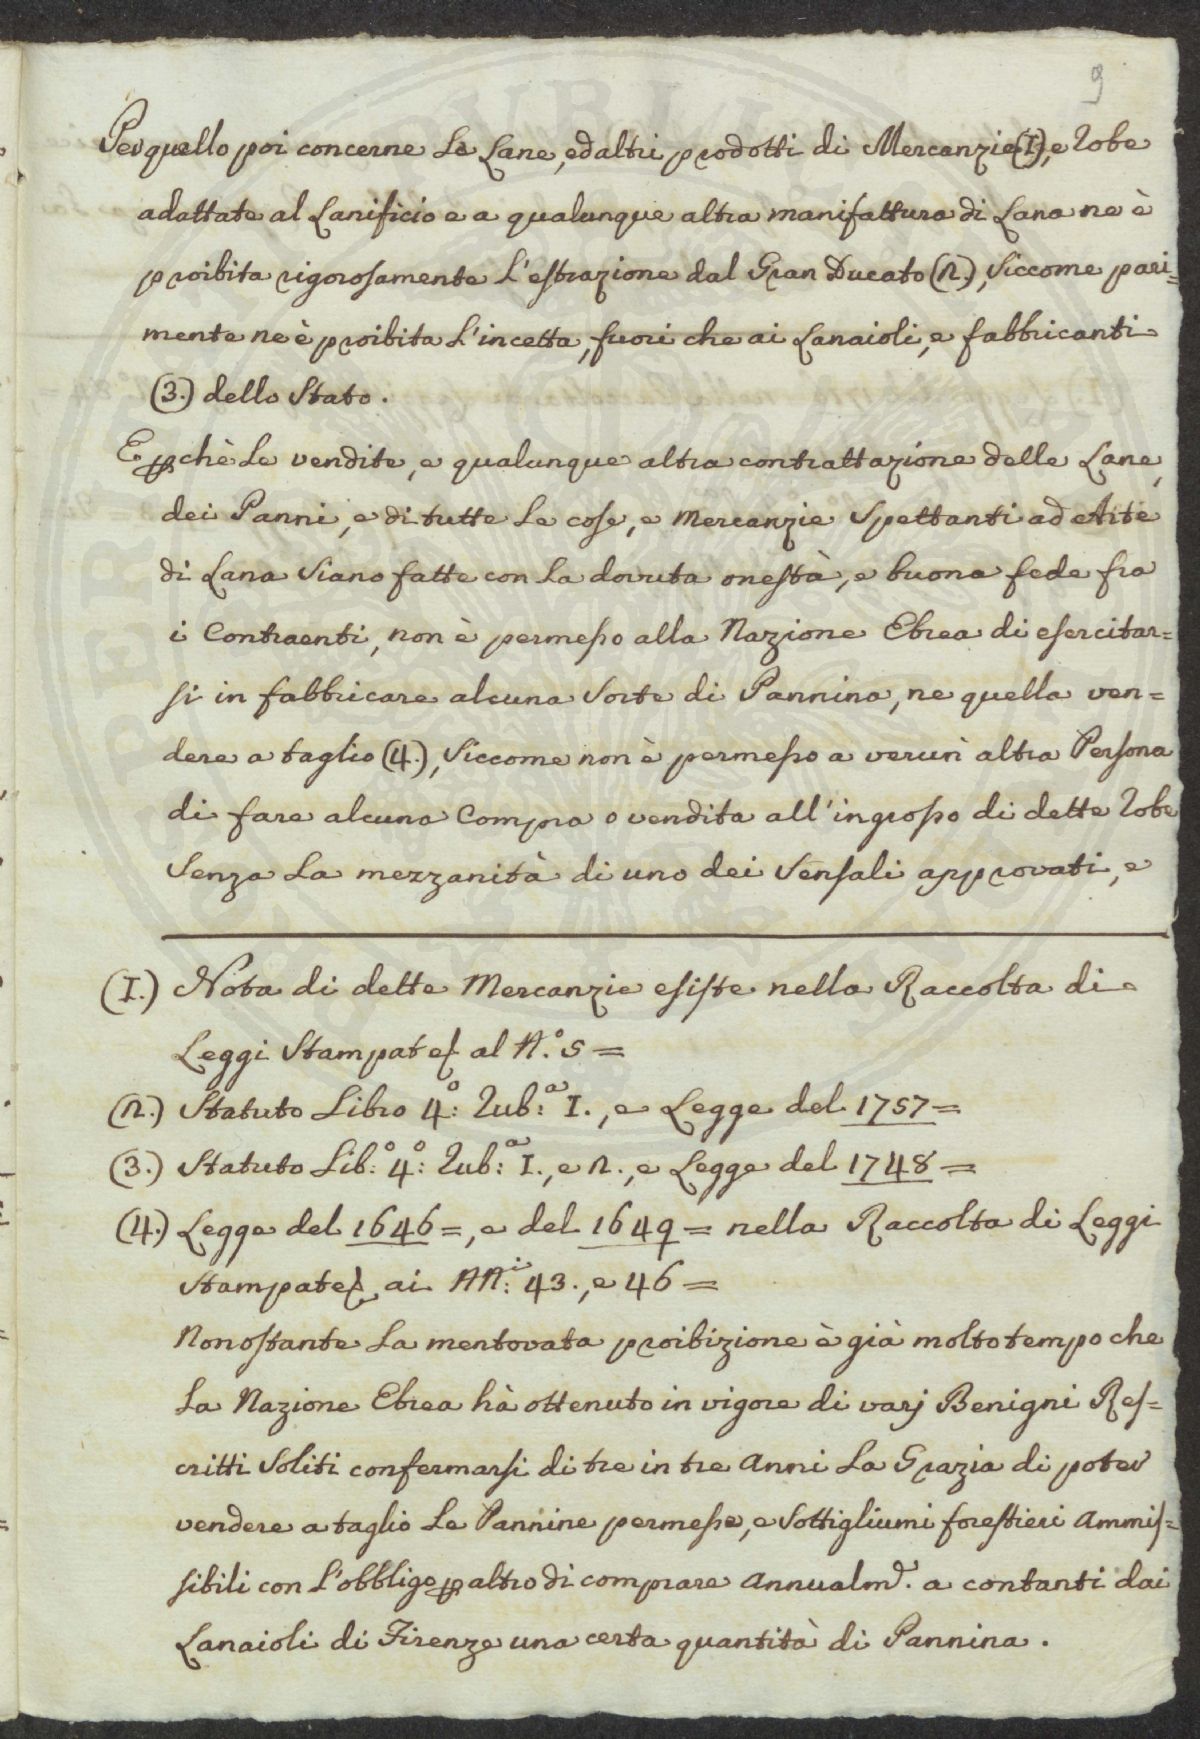 9
Per quello poi concerne Le Lane, ed altri prodotti di Mercanzie (I), e Robe
adattate al Lanificio e a qualunque altra manifattura di Lana ne è
proibita rigorosamente L'estrazione dal Gran Ducato (2.), Siccome pari=
mente ne è proibita L'incetta, fuori che ai Lanaioli, e fabbricanti
(3.) dello Stato.
E pchè Le vendite, e qualunque altra contrattazione delle Lane,
dei Panni, e di tutte Le cose, e Mercanzie Spettanti ad Arte
di Lana Siano fatte con La dovuta onestà, e buona fede fra
i Contraenti, non è permesso alla Nazione Ebrea di esercitar=
si in fabbricare alcuna Sorte di Pannina, ne quella ven=
dere a taglio (4.), Siccome non è permesso a verun' altra Persona
di fare alcuna Compra o vendita all'ingrosso di dette Robe
Senza La mezzanità di uno dei Sensali approvati, e
(I.) Nota di dette Mercanzie esiste nella Raccolta di
Leggi Stampate al N.º 5 =
(2.) Statuto Libro 4º: Rub:ª I., e Legge del 1757 =
(3.) Statuto Lib:º 4º: Rub:ª I., e 2., e Legge del 1748 =
(4.) Legge del 1646 =, e del 1649 = nella Raccolta di Leggi
Stampate, ai NN:i 43., e 46 =
Nonostante La mentovata proibizione è già molto tempo che
La Nazione Ebrea hà ottenuto in vigore di varj Benigni Res=
critti Soliti confermarsi di tre in tre Anni La Grazia di poter
vendere a taglio Le Pannine permesse, e Sottigliumi forestieri Ammis=
sibili con L'obbligo p altro di comprare Annualm.e a contanti dai
Lanaioli di Firenze una certa quantità di Pannina.